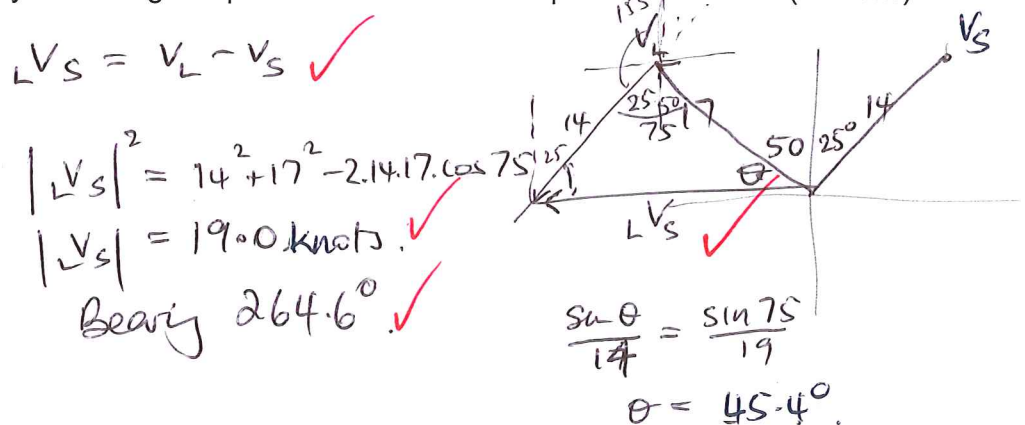 LVS = VL - VS
|LVS|² = 14² + 17² - 2.14.17.cos 75
|LVS| = 19.0 knots.
Bearing 264.6°.
155
VL
VS
25 50
75
14
17
14
50 25°
25
θ
LVS
sin θ / 14 = sin 75 / 19
θ = 45.4°.